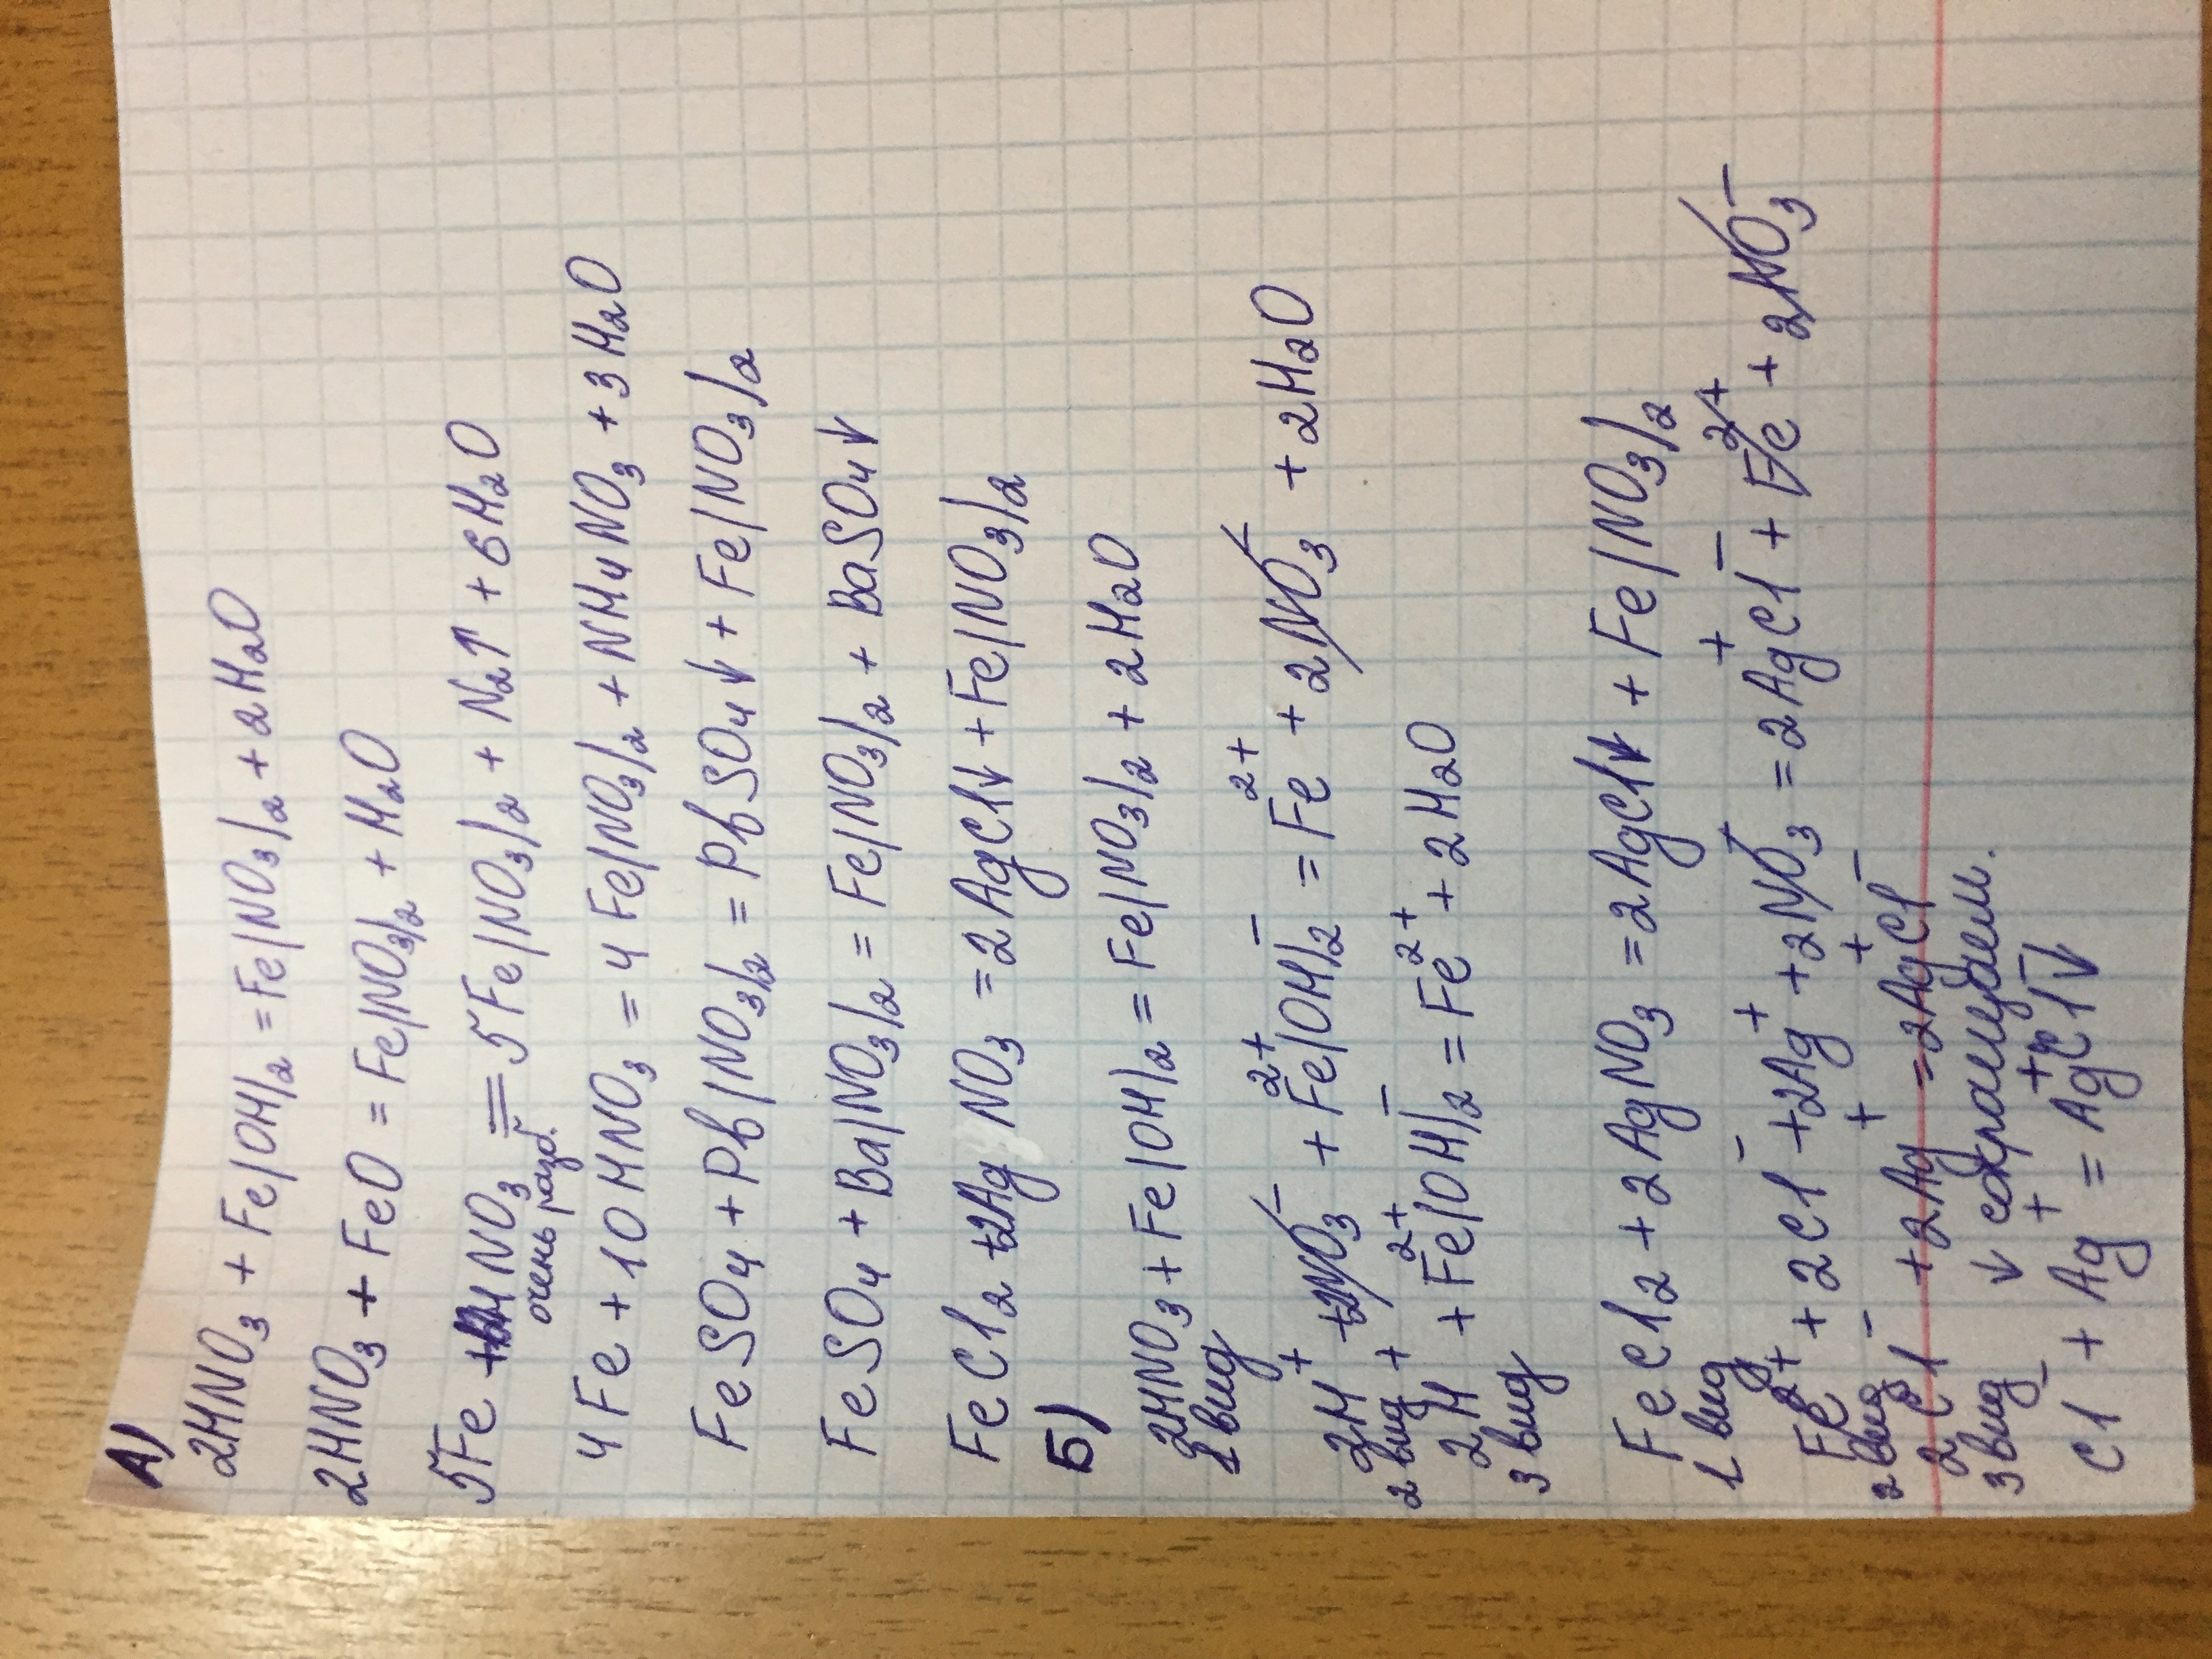 А)
2HNO₃ + Fe(OH)₂ = Fe(NO₃)₂ + 2H₂O
2HNO₃ + FeO = Fe(NO₃)₂ + H₂O
5Fe + HNO₃ = 5Fe(NO₃)₂ + N₂↑ + 6H₂O
очень разб.
4Fe + 10HNO₃ = 4Fe(NO₃)₂ + NH₄NO₃ + 3H₂O
FeSO₄ + Pb(NO₃)₂ = PbSO₄↓ + Fe(NO₃)₂
FeSO₄ + Ba(NO₃)₂ = Fe(NO₃)₂ + BaSO₄↓
FeCl₂ + 2AgNO₃ = 2AgCl↓ + Fe(NO₃)₂
Б)
2HNO₃ + Fe(OH)₂ = Fe(NO₃)₂ + 2H₂O
1 вид
2H⁺ + 2NO₃⁻ + Fe²⁺(OH)₂⁻ = Fe²⁺ + 2NO₃⁻ + 2H₂O
2 вид
2H⁺ + Fe²⁺(OH)₂⁻ = Fe²⁺ + 2H₂O
3 вид
FeCl₂ + 2AgNO₃ = 2AgCl↓ + Fe(NO₃)₂
1 вид
Fe²⁺ + 2Cl⁻ + 2Ag⁺ + 2NO₃⁻ = 2Ag⁺Cl⁻ + Fe²⁺ + 2NO₃⁻
2 вид
2Cl⁻ + 2Ag⁺ = 2Ag⁺Cl⁻
3 вид ↓ сокращаем.
Cl⁻ + Ag⁺ = Ag⁺Cl⁻↓